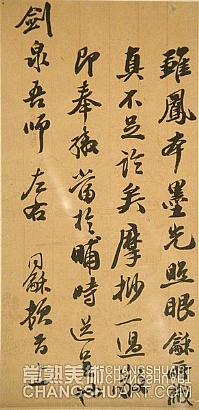 鍾鳳本墨光照眼龢
真不足論矣摩抄一過
即奉繳當於晡時送呈
劍泉吾師左右
同龢頓首
常熟美術CHANGSHUART
CHANGSHUART.COM